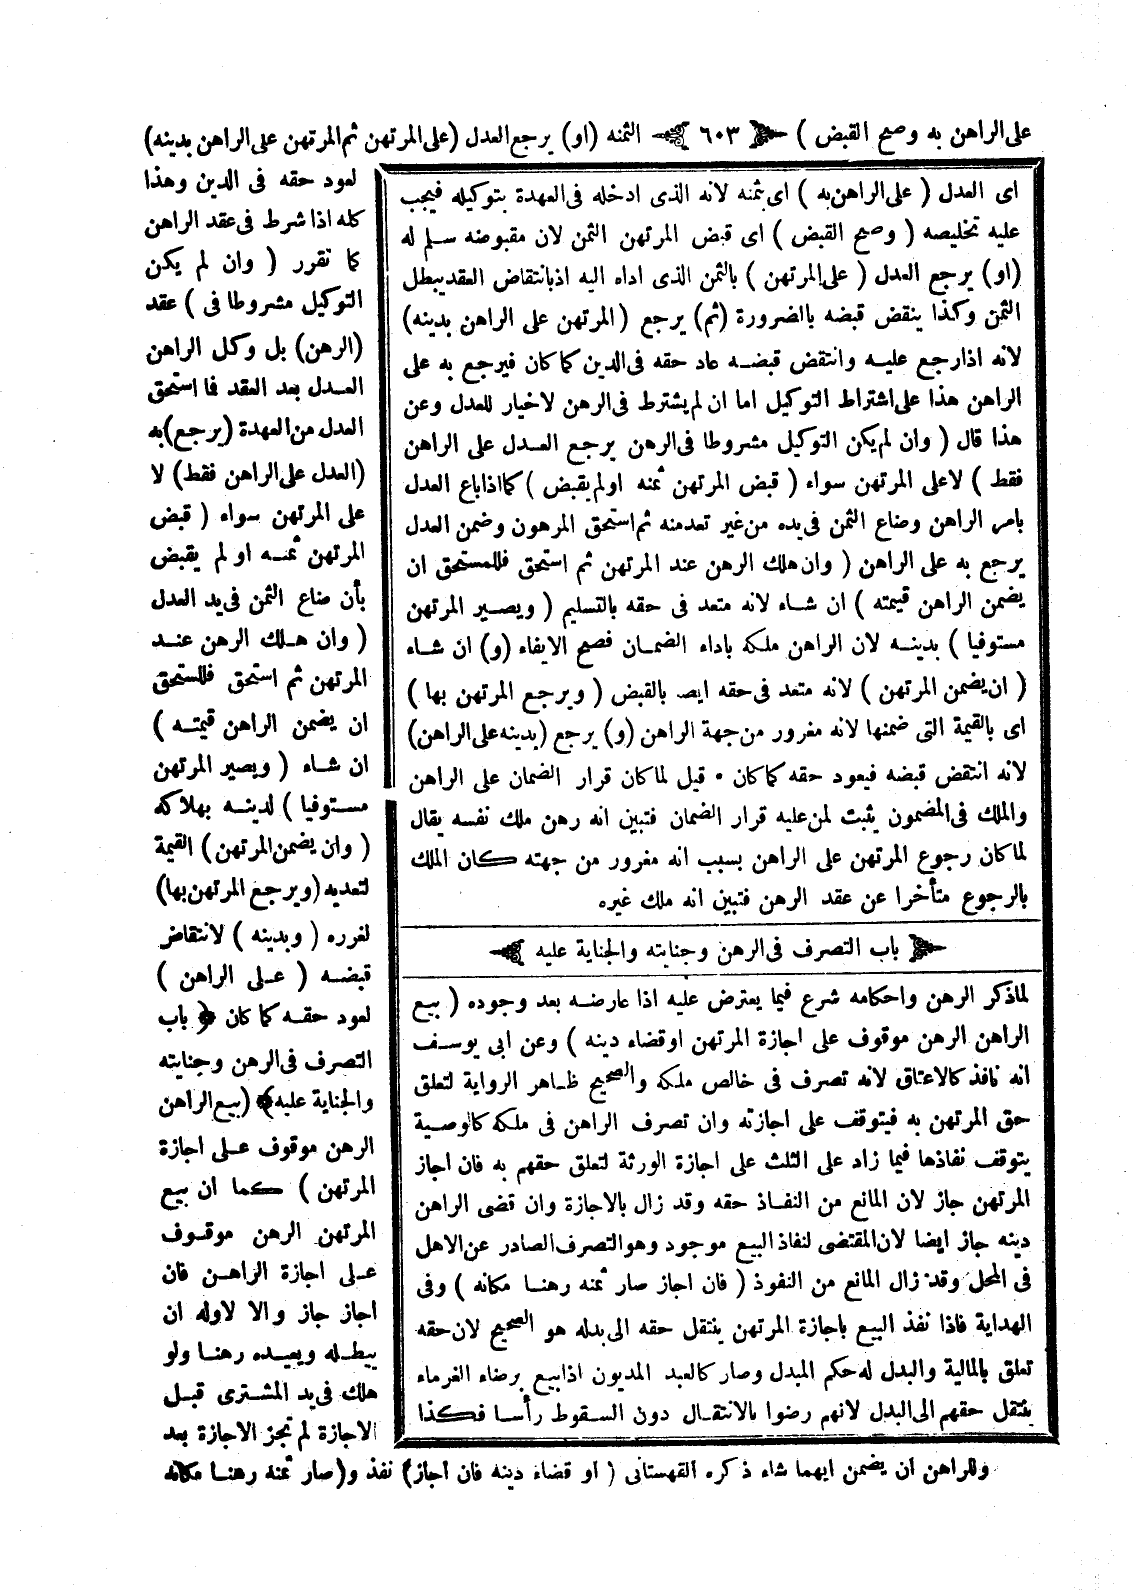 على الراهن به وصح القبض ) ﴿ ٦٠٣ ﴾ الثمنه (او) يرجع العدل (على المرتهن ثم المرتهن على الراهن بدينه)
اى العدل ( على الراهن به ) اى بثمنه لانه الذى ادخله فى العهدة بتوكيله فيجب
عليه تخليصه ( وصح القبض ) اى قبض المرتهن الثمن لان مقبوضه سلم له
(او) يرجع العدل ( على المرتهن ) بالثمن الذى اداه اليه اذ بانتقاض العقد يبطل
الثمن وكذا ينقض قبضه بالضرورة (ثم) يرجع ( المرتهن على الراهن بدينه)
لانه اذا رجع عليه وانتقض قبضه عاد حقه فى الدين كما كان فيرجع به على
الراهن هذا على اشتراط التوكيل اما ان لم يشترط فى الرهن لاخيار للعدل وعن
هذا قال ( وان لم يكن التوكيل مشروطا فى الرهن يرجع العدل على الراهن
فقط ) لاعلى المرتهن سواء ( قبض المرتهن ثمنه اولم يقبض ) كما اذا باع العدل
بامر الراهن وضاع الثمن فى يده من غير تعد منه ثم استحق المرهون وضمن العدل
يرجع به على الراهن ( وان هلك الرهن عند المرتهن ثم استحق فللمستحق ان
يضمن الراهن قيمته ) ان شاء لانه متعد فى حقه بالتسليم ( ويصير المرتهن
مستوفيا ) بدينه لان الراهن ملكه باداء الضمان فصح الايفاء (و) ان شاء
( ان يضمن المرتهن ) لانه متعد فى حقه ايضا بالقبض ( ويرجع المرتهن بها )
اى بالقيمة التى ضمنها لانه مغرور من جهة الراهن (و) يرجع (بدينه على الراهن)
لانه انتقض قبضه فيعود حقه كما كان • قيل لما كان قرار الضمان على الراهن
والملك فى المضمون يثبت لمن عليه قرار الضمان فتبين انه رهن ملك نفسه يقال
لما كان رجوع المرتهن على الراهن بسبب انه مغرور من جهته كان الملك
بالرجوع متأخرا عن عقد الرهن فتبين انه ملك غيره
﴿ باب التصرف فى الرهن وجنايته والجناية عليه ﴾
لما ذكر الرهن واحكامه شرع فيما يعترض عليه اذا عارضه بعد وجوده ( بيع
الراهن الرهن موقوف على اجازة المرتهن اوقضاء دينه ) وعن ابى يوسف
انه نافذ كالاعتاق لانه تصرف فى خالص ملكه والصحيح ظاهر الرواية لتعلق
حق المرتهن به فيتوقف على اجازته وان تصرف الراهن فى ملكه كالوصية
يتوقف نفاذها فيما زاد على الثلث على اجازة الورثة لتعلق حقهم به فان اجاز
المرتهن جاز لان المانع من النفاذ حقه وقد زال بالاجازة وان قضى الراهن
دينه جاز ايضا لان المقتضى لنفاذ البيع موجود وهو التصرف الصادر عن الاهل
فى المحل وقد زال المانع من النفوذ ( فان اجاز صار ثمنه رهنا مكانه ) وفى
الهداية فاذا نفذ البيع باجازة المرتهن ينتقل حقه الى بدله هو الصحيح لان حقه
تعلق بالمالية والبدل له حكم المبدل وصار كالعبد المديون اذا بيع برضاء الغرماء
ينتقل حقهم الى البدل لانهم رضوا بالانتقال دون السقوط رأسا فكذا
لعود حقه فى الدين وهذا
كله اذا شرط فى عقد الراهن
كما تقرر ( وان لم يكن
التوكيل مشروطا فى ) عقد
(الرهن) بل وكل الراهن
العدل بعد العقد فما استحق
العدل من العهدة (يرجع) به
(العدل على الراهن فقط) لا
على المرتهن سواء ( قبض
المرتهن ثمنه او لم يقبض
بأن ضاع الثمن فى يد العدل
( وان هلك الرهن عند
المرتهن ثم استحق فللمستحق
ان يضمن الراهن قيمته )
ان شاء ( ويصير المرتهن
مستوفيا ) لدينه بهلاكه
( وان يضمن المرتهن ) القيمة
لتعديه (ويرجع المرتهن بها)
لغرره ( وبدينه ) لانتقاض
قبضه ( على الراهن )
لعود حقه كما كان ﴿ باب
التصرف فى الرهن وجنايته
والجناية عليه﴾ (بيع الراهن
الرهن موقوف على اجازة
المرتهن ) كما ان بيع
المرتهن الرهن موقوف
على اجازة الراهن فان
اجاز جاز والا لاوله ان
يبطله ويعيده رهنا ولو
هلك فى يد المشترى قبل
الاجازة لم تجز الاجازة بعد
وللراهن ان يضمن ايهما شاء ذكره القهستانى ( او قضاء دينه فان اجاز) نفذ و(صار ثمنه رهنا مكانه